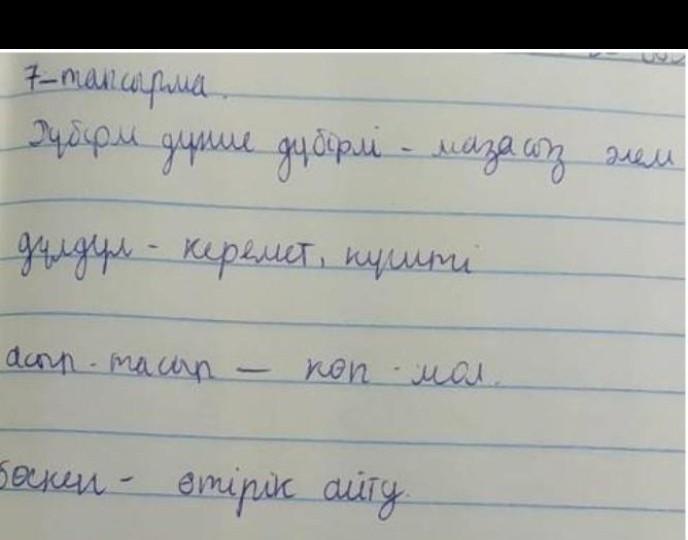 7-тапсырма.
Дүбірм дүние дүбірлі - мазасыз әлем
дүлдүл - керемет, күшті
асып-тасып — көп-мол.
бөскен - өтірік айту.